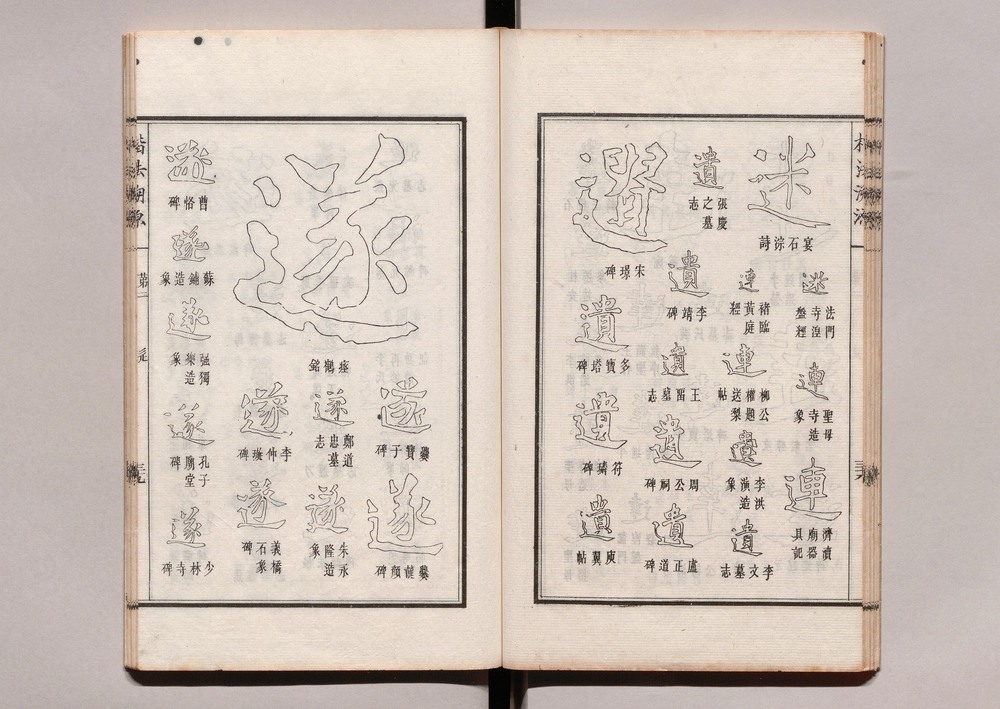 迷
宴石淙詩
迷
法門寺湼盤經
連
聖母寺造象
連
濟瀆廟器具記
連
褚臨黃庭經
連
柳公權題送梨帖
遺
李洪演造象
遺
李文墓志
遺
張慶之墓志
遺
李靖碑
遺
王畱墓志
遺
周公祠碑
遺
盧正道碑
宋璟碑
遺
多寶塔碑
遺
符璘碑
遺
庾翼帖
楷法溯源
遂
瘞鶴銘
遂
爨寶子碑
遂
爨龍顏碑
遂
鄭道忠墓志
遂
朱永隆造象
遂
李仲璇碑
遂
義橋石象碑
遂
曹恪碑
遂
造象
遂
強獨樂造象
遂
孔子廟堂碑
遂
少林寺碑
楷法溯源